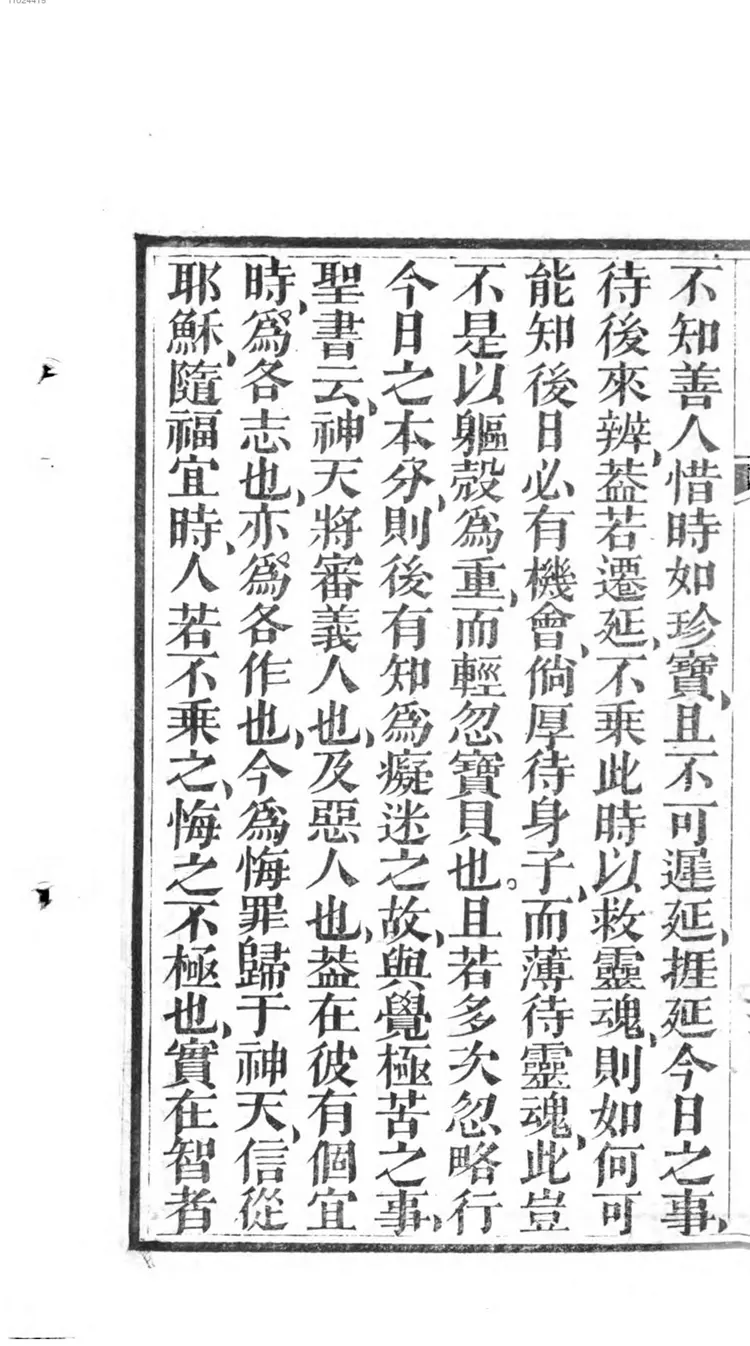 11024419
不知善人惜時如珍寶,且不可遲延,捱延今日之事,
待後來辨,葢若遷延,不乘此時以救靈魂,則如何可
能知後日必有機會,倘厚待身子,而薄待靈魂,此豈
不是以軀殼爲重,而輕忽寶貝也。且若多次忽略行
今日之本分,則後有知爲癡迷之故,與覺極苦之事,
聖書云,神天將審義人也,及惡人也,葢在彼有個宜
時,爲各志也,亦爲各作也,今為悔罪歸于神天,信從
耶穌,隨福宜時,人若不乘之,悔之不極也,實在智者